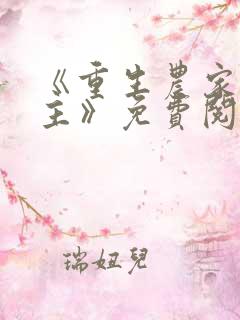 《重生農家
主》免費閱
瑞妞兒